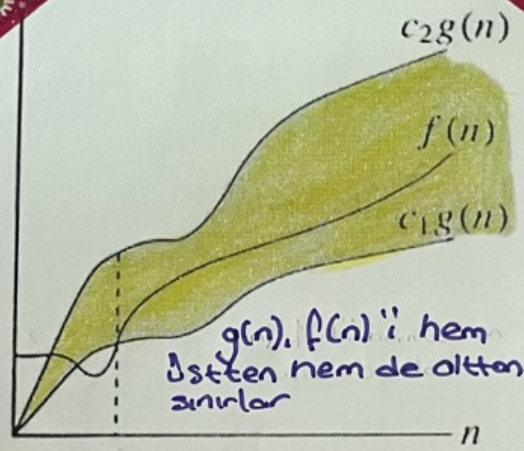 c₂g(n)
f(n)
c₁g(n)
g(n), f(n)'i hem
Üstten hem de alttan
sınırlar
n